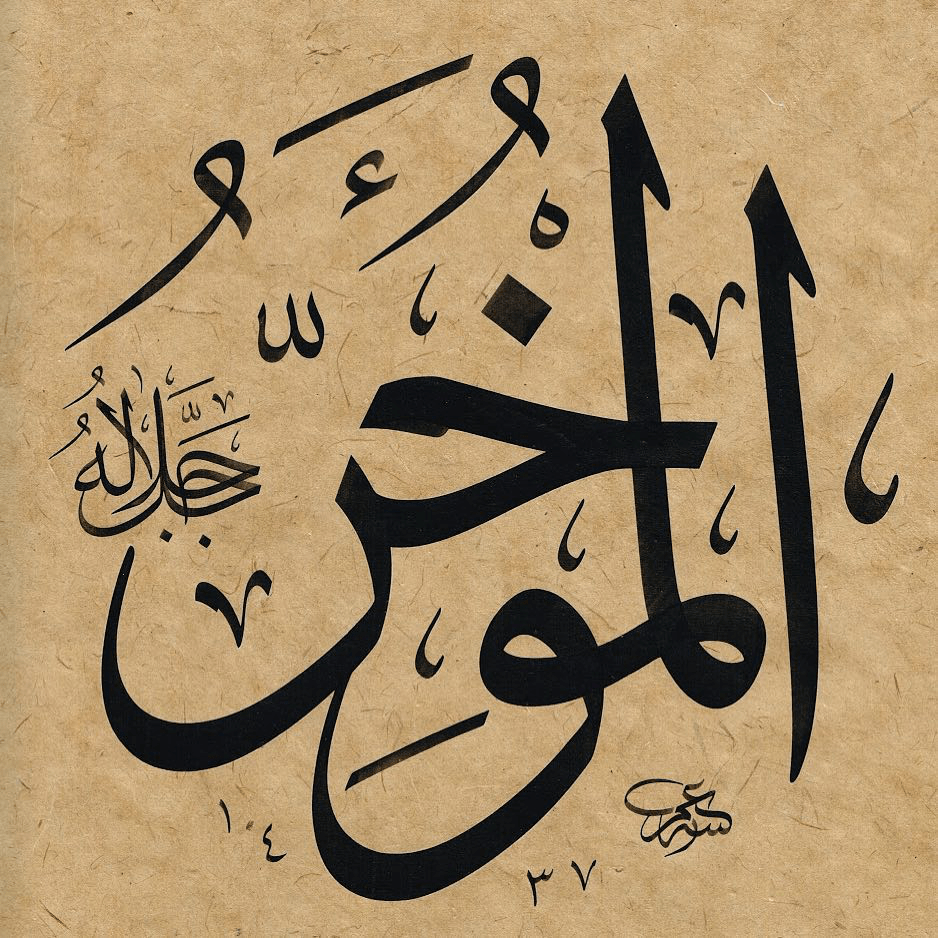 الْمُؤَخِّرُ
جَلَّ جَلَالُهُ
١٤٣٧